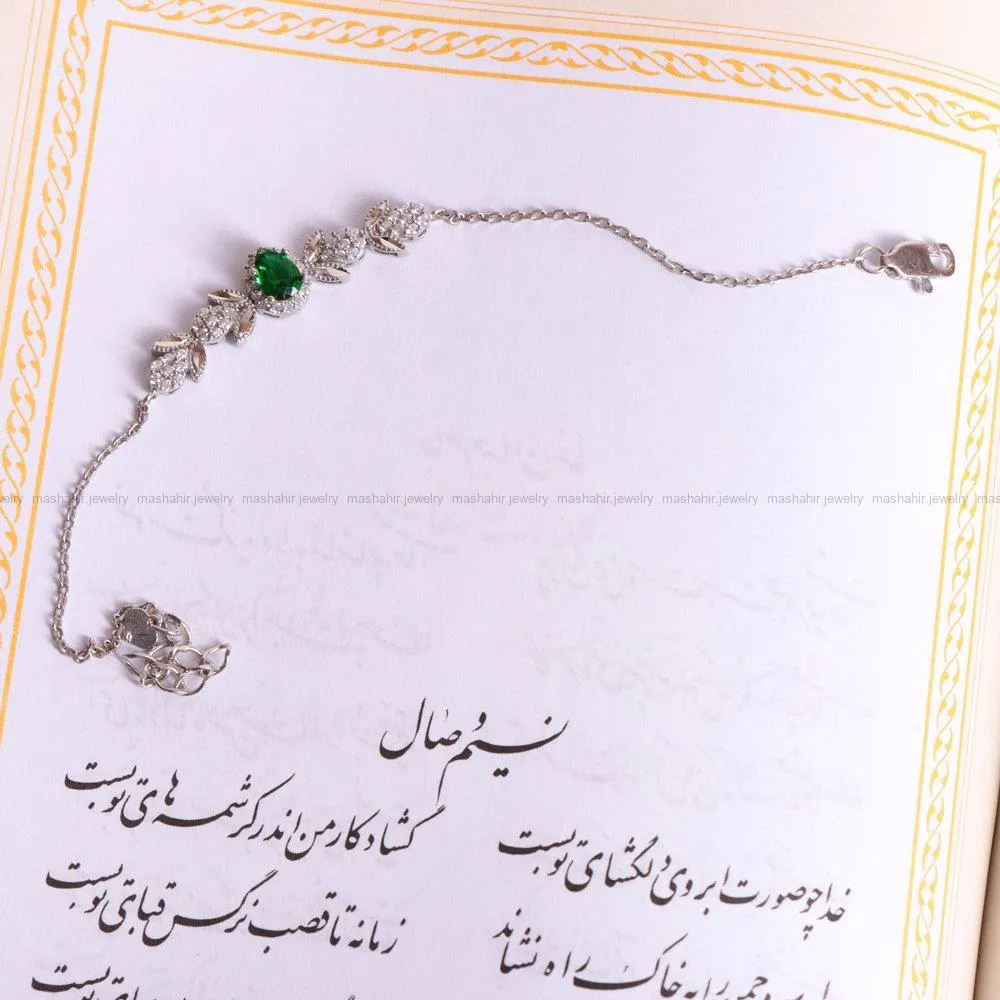 mashahir.jewelry mashahir.jewelry mashahir.jewelry mashahir.jewelry mashahir.jewelry mashahir.jewelry mashahir.jewelry mashahir.jewelry mashahir.jewelry
نسیم وصال
خدا چو صورت ابروی دلگشای تو بست
گشاد کار من اندر کرشمه های تو بست
چمن را به خاک راه نشاند
زمانه تا قصب نرگس قبای تو بست
تو بست